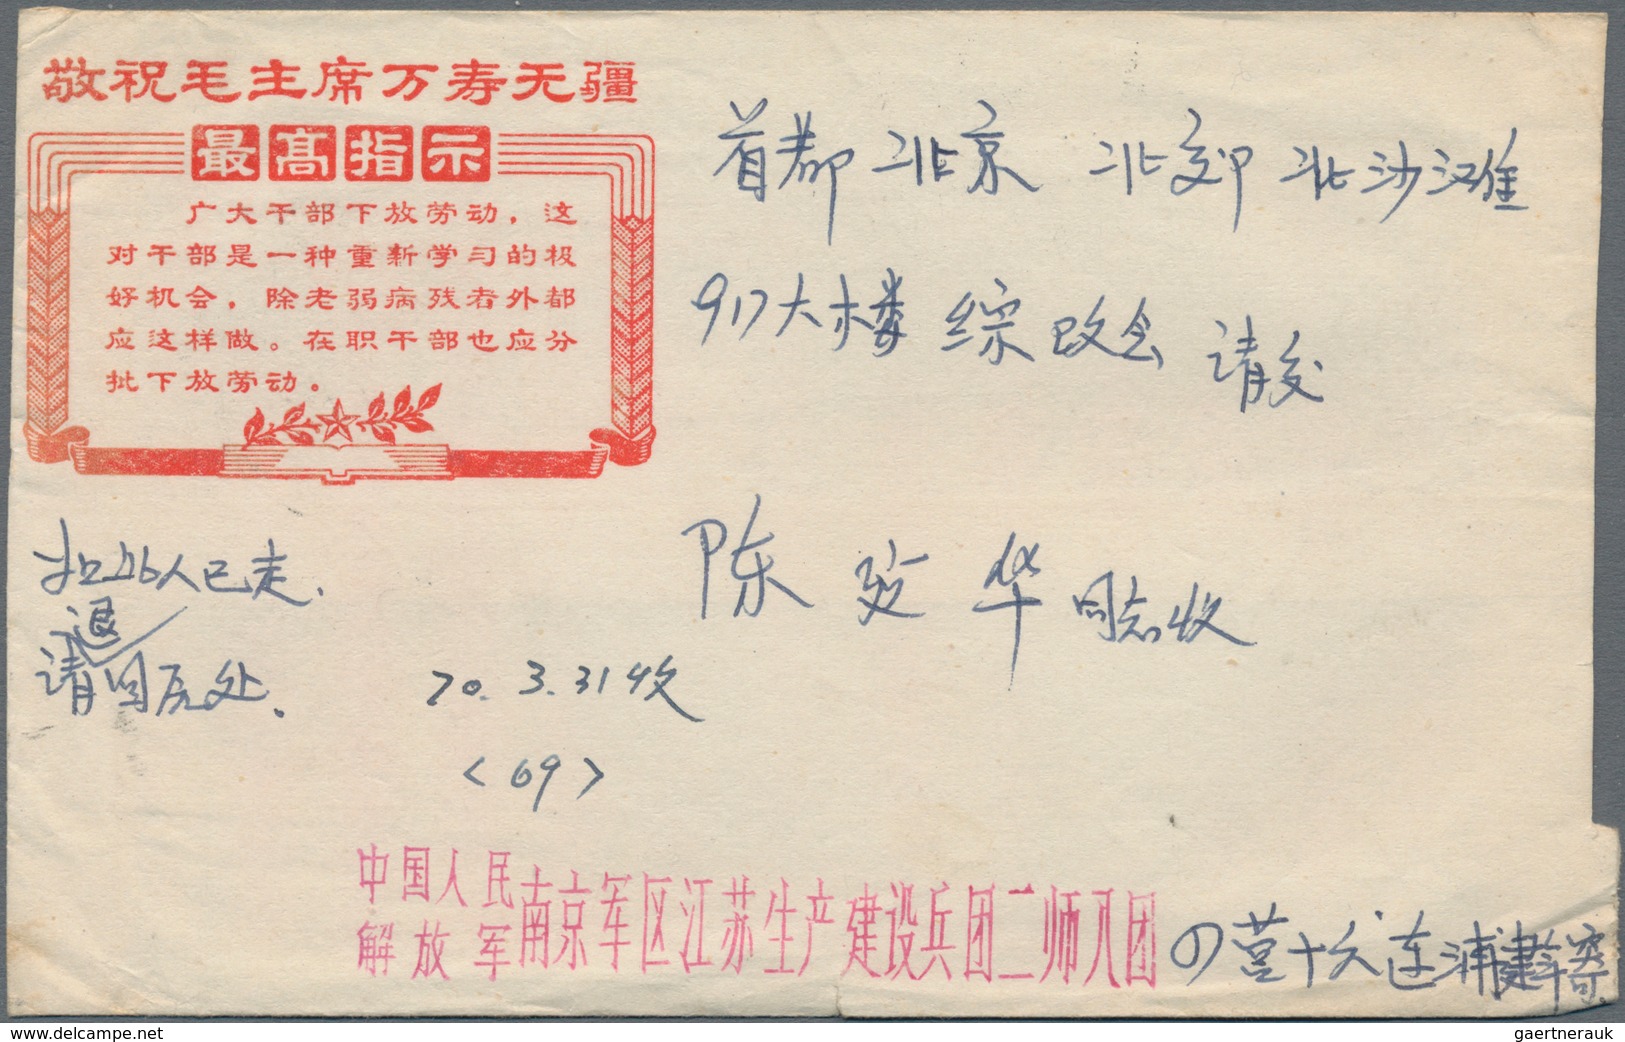 敬祝毛主席万寿无疆
最高指示
广大干部下放劳动，这
对干部是一种重新学习的极
好机会，除老弱病残者外都
应这样做。在职干部也应分
批下放劳动。
首都 北京 北郊 北沙滩
917大楼 综 改会 请交
陈 华 同志收
人已走.
退
请回原处.
70. 3. 31收
<69>
中国人民
解放军
南京军区江苏生产建设兵团二师八团
营十 连浦建华寄.
gaertnerauk